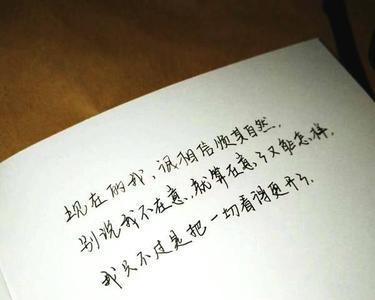 现在的我，只相信顺其自然，
别说我不在意，就算在意了又能怎样，
我只不过是把一切看得更开了.